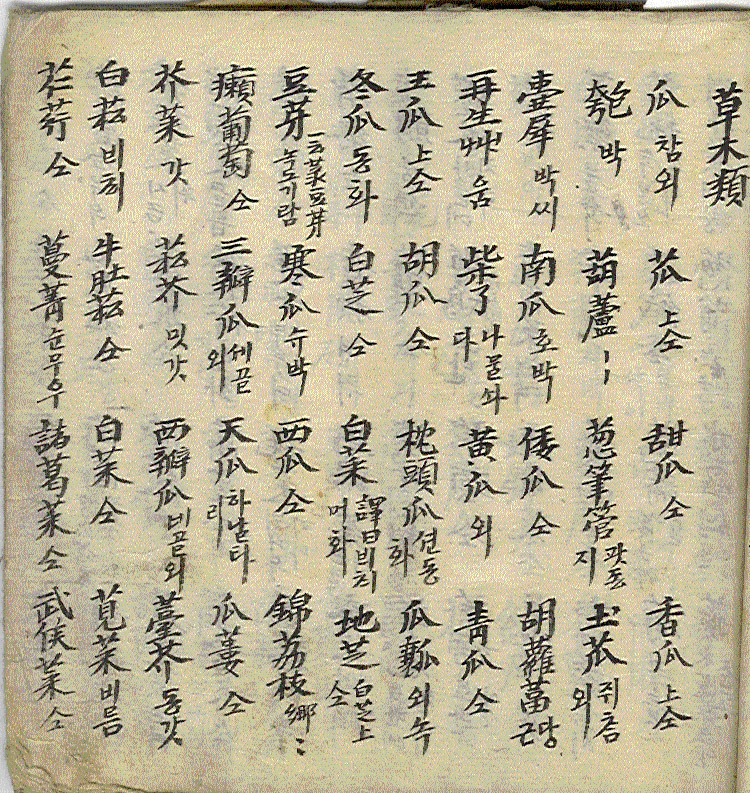 草木類
瓜 참외 苽 上仝 甜瓜 仝 香瓜 上仝
匏 박 葫蘆 〃 葱筆管 팟동지 土苽 쥐참외
壺犀 박씨 南瓜 호박 倭瓜 仝 胡蘿葍 당근
再生艸 움 柴了 나물쇠다 黃瓜 외 靑瓜 仝
王瓜 上仝 胡瓜 仝 枕頭瓜 션동화 瓜瓤 외속
冬瓜 동화 白芝 仝 白菜 譯曰비치머화 地芝 白芝上仝
豆芽 一云菉豆芽녹두기람 寒瓜 슈박 西瓜 仝 錦荔枝 鄕〃
癩葡萄 仝 三瓣瓜 세골외 天瓜 하날타리 瓜蔞 仝
芥菜 갓 菘芥 밋갓 四瓣瓜 네골외 薹芥 동갓
白菘 비치 牛肚菘 仝 白菜 仝 莧菜 비름
仝 蔓菁 쉰무우 諸葛菜 仝 武侯菜 仝